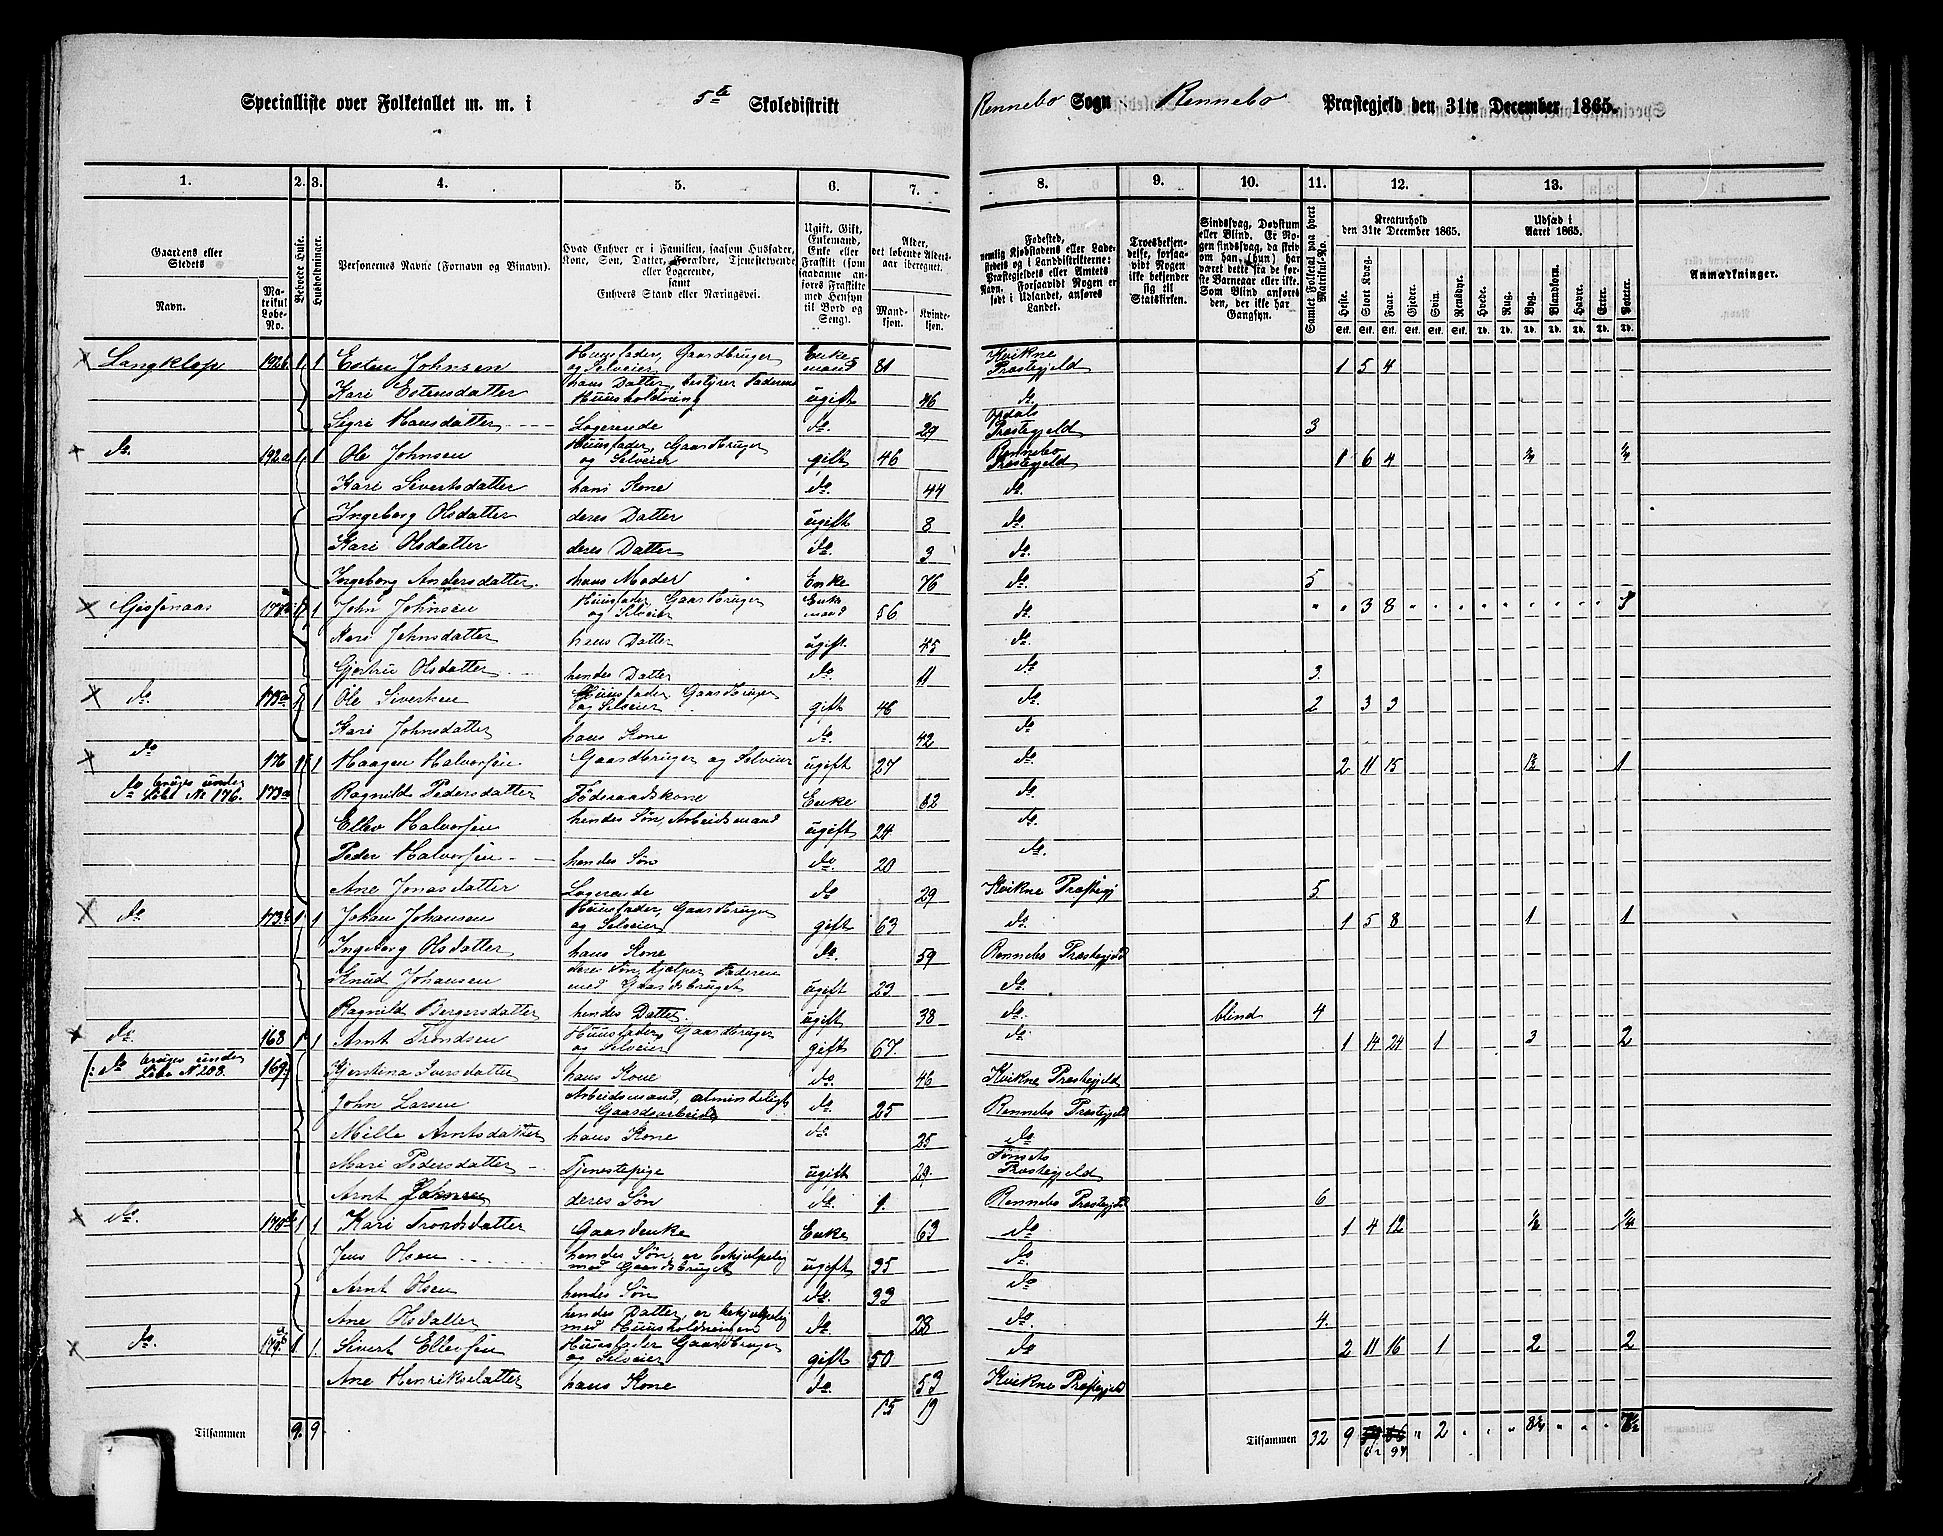 Specialliste over Folketallet m. m. i 5te Skoledistrikt Rennebo Sogn Rennebo Præstegjeld den 31te December 1865.
1. 2. 3. 4. 5. 6. 7. 8. 9. 10. 11. 12. 13. 1.
Gaardens eller Stedets
Navn.
Matrikul Løbe-No.
Beboede Huse.
Husholdninger.
Personernes Navne (Fornavn og Tilnavn).
Hvad Enhver er i Familien, saasom Husfader, Kone, Søn, Datter, Forældre, Tjenestetyende eller Logerende, samt Enhvers Stand eller Næringsvei.
Ugift, Gift, Enkemand, Enke eller Fraskilt
Alder, det løbende Aldersaar iberegnet.
Mandkjøn. Kvindekjøn.
Fødested,
Troesbekjendelse, forsaavidt Nogen ikke bekjender sig til Statskirken.
Sindssvag, Døvstum eller Blind.
Samlet Folketal paa hvert Matrikul-No.
Kreaturhold den 31te December 1865.
Heste. Stort Kvæg. Faar. Gjeder. Svin. Rensdyr.
Udsæd i Aaret 1865.
Hvede. Rug. Byg. Blandkorn. Havre. Erter. Poteter.
Anmærkninger.
Langklop 192b 1 1 Esten Johnsen Huusfader, Gaardbruger og Selveier Enkemand 81 Kvikne Præstegjeld 1 5 4
Kari Estensdatter hans Datter, bestyrer Faderens Huusholdning ugift 46 do
Sigri Hansdatter Logerende do. 29 Opdals Præstegjeld 3
do. 192a 1 1 Ole Johnsen Huusfader, Gaardbruger og Selveier gift 46 Rennebo Præstegjeld 1 6 4
Kari Sivertsdatter hans Kone do. 44 do.
Ingeborg Olsdatter deres Datter ugift 8 do
Kari Olsdatter deres Datter do. 3 do.
Ingeborg Andersdatter hans Moder Enke 76 do. 5
Gissenaas 1 John Johnsen Huusfader, Gaardbruger og Selveier Enkemand 56 do. 3 8
Kari Johnsdatter hans Datter ugift. 45 do
Gjertru Olsdatter hendes Datter do. 11 do 3.
do. 175a 1 Ole Sivertsen Huusfader Gaardbruger og Selveier gift 46 do 2 3 3
Kari Johnsdatter hans Kone do. 42 do
do 176 1 1 Haagen Halvorsen Gaardbruger og Selveier ugift 27 do 2 11 15 1
do bruges under Løbe No 176. 173a Ragnild Pedersdatter Føderaadskone Enke 62 do
Ellev Halvorsen hendes Søn, Arbeidsmand ugift 24 do.
Peder Halvorsen hendes Søn do. 20 do.
Ane Jonasdatter Logerende do 29 Kvikne Præstegj 5.
do 173b 1 1 Johan Johansen Huusfader, Gaardbruger og Selveier gift 63 do. 1 5 8 1 1
Ingeborg Olsdatter hans Kone do. 59 Rennebo Præstegjeld
Knud Johansen deres Søn, hjælper Faderen med Gaardsbruget ugift 23 do.
Ragnild Bergersdatter hendes Datter. ugift 38 do. blind 4
do 168 1 1 Arnt Trondsen Huusfader, Gaardbruger og Selveier gift 67. do 1 14 24 1 3 2
(: do bruges under Løbe N 208. 169:) Kjerstena Iversdatter hans Kone do. 46 Kvikne Præstegjeld
John Larsen Arbeidsmand, almindeligt Gaardsarbeide do 25 Rennebo Præstegjeld
Mille Arntsdatter hans Kone do. 25 do
Mari Pedersdatter Tjenestepige ugift 29 Tønsets Præstegjeld
Arnt Johnsen deres Søn do. 1. Rennebo Præstegjeld 6
do. 1 1 Kari Trondsdatter Gaardenke Enke 63 do 1 4 12 ½ ¼
Jens Olsen hendes Søn, er behjelpelig med Gaardsbruget ugift 35 do.
Arnt Olsen hendes Søn do. 33 do
Ane Olsdatter hendes Datter, er behjelpelig med Huusholdningen do 28 do. 4.
do. 1 1 Sivert Ellevsen Huusfader Gaardbruger og Selveier gift 50 do 2 11 16 1 2 2
Ane Henriksdatter hans Kone do. 53 Kvikne Præstegjeld
15 19
Tilsammen 9. 9. Tilsammen 32 9 94 2